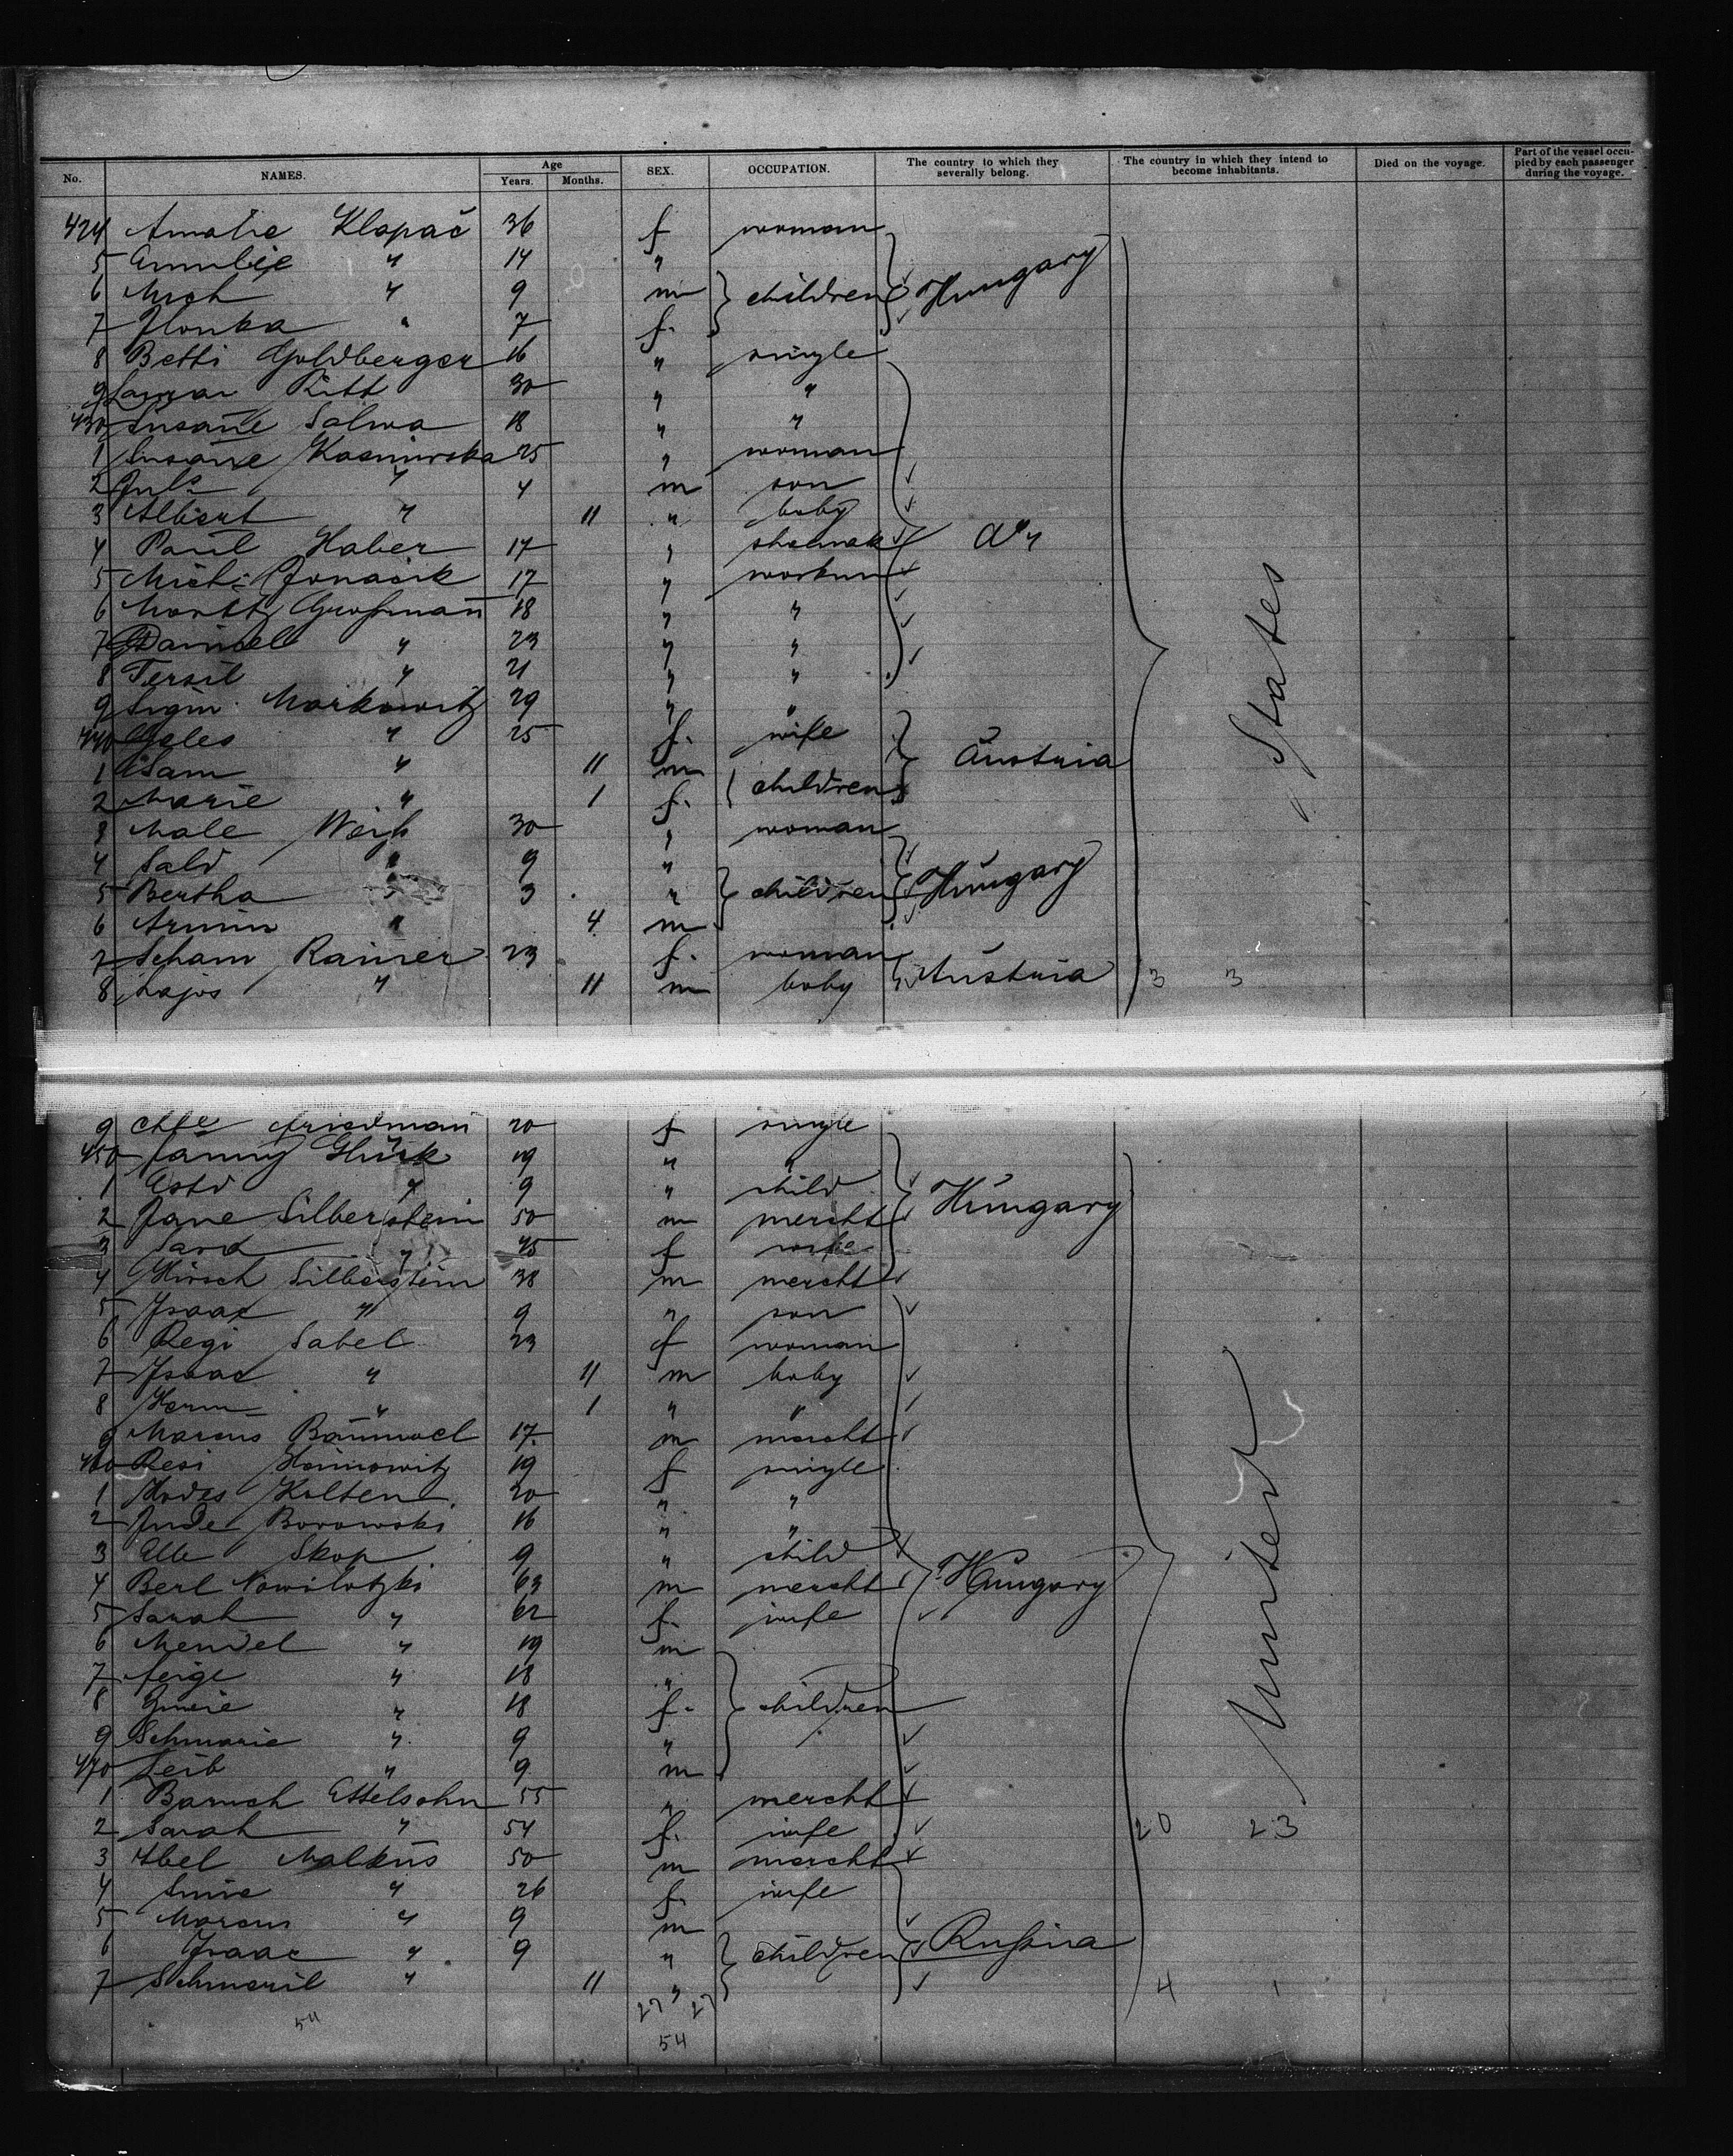 No. NAMES. Age Years. Months. SEX. OCCUPATION. The country to which they severally belong. The country in which they intend to become inhabitants. Died on the voyage. Part of the vessel occupied by each passenger during the voyage.
424 Amalie Klapač 36 f woman
5 " 14 "
6 Mich " 9 m children Hungary
7 Ilonka " 7 f.
8 Betti Goldberger 16 " single
9 Ritt 30 " "
430 Susane Salwa 18 " "
1 Susane Kasnirska 25 " woman
2 Juls " 4 m son
3 Albert " 11 " baby
4 Paul Haber 17 " shomak
5 Mich: Jonačik 17 " workm
6 Moritz Großmann 18 " "
7 Daniel " 23 " "
8 Tersil " 21 " "
9 Sigm. Markowitz 29 " "
440 " 25 f. wife Austria
1 Sam " 11 m children
2 Marie " 1 f.
3 Male Weiß 30 " woman
4 Sald " 9 " Hungary
5 Bertha " 3 " children
6 Armin " 4 m
7 Scham Rainer 23 f. woman
8 Lajos " 11 m baby Austria 3 3
States
9 Friedman 20 f single
450 Fanny Glück 19 " "
1 " 9 " child Hungary
2 Jane Silberstein 50 m mercht
3 Sara " 45 f wife
4 Hirsch Silberstein 38 m mercht
5 Isaac " 9 " son
6 Regi Sabel 23 f woman
7 Isaac " 11 m baby
8 Herm " 1 " "
9 Marcus Baumwel 17 m mercht
460 Resi Heimowitz 19 f single
1 Hodes Kolten 20 " "
2 Jude Borowski 16 " "
3 Elle Skop 9 " child
4 Berl Nowilotzki 63 m mercht Hungary
5 Sarah " 62 f. wife
6 Mendel " 19 m
7 Feige " 18 "
8 " 18 f. children
9 Schmarie " 9 "
470 Leib " 9 m
1 Baruch Ettelsohn 55 " mercht
2 Sarah " 54 f. wife 20 23
3 Abel Malkus 50 m mercht
4 " 26 f. wife
5 Marcus " 9 m
6 Isaac " 9 " children Rußia
7 Schmeril " 11 " 4 1
United
27 27
54 54